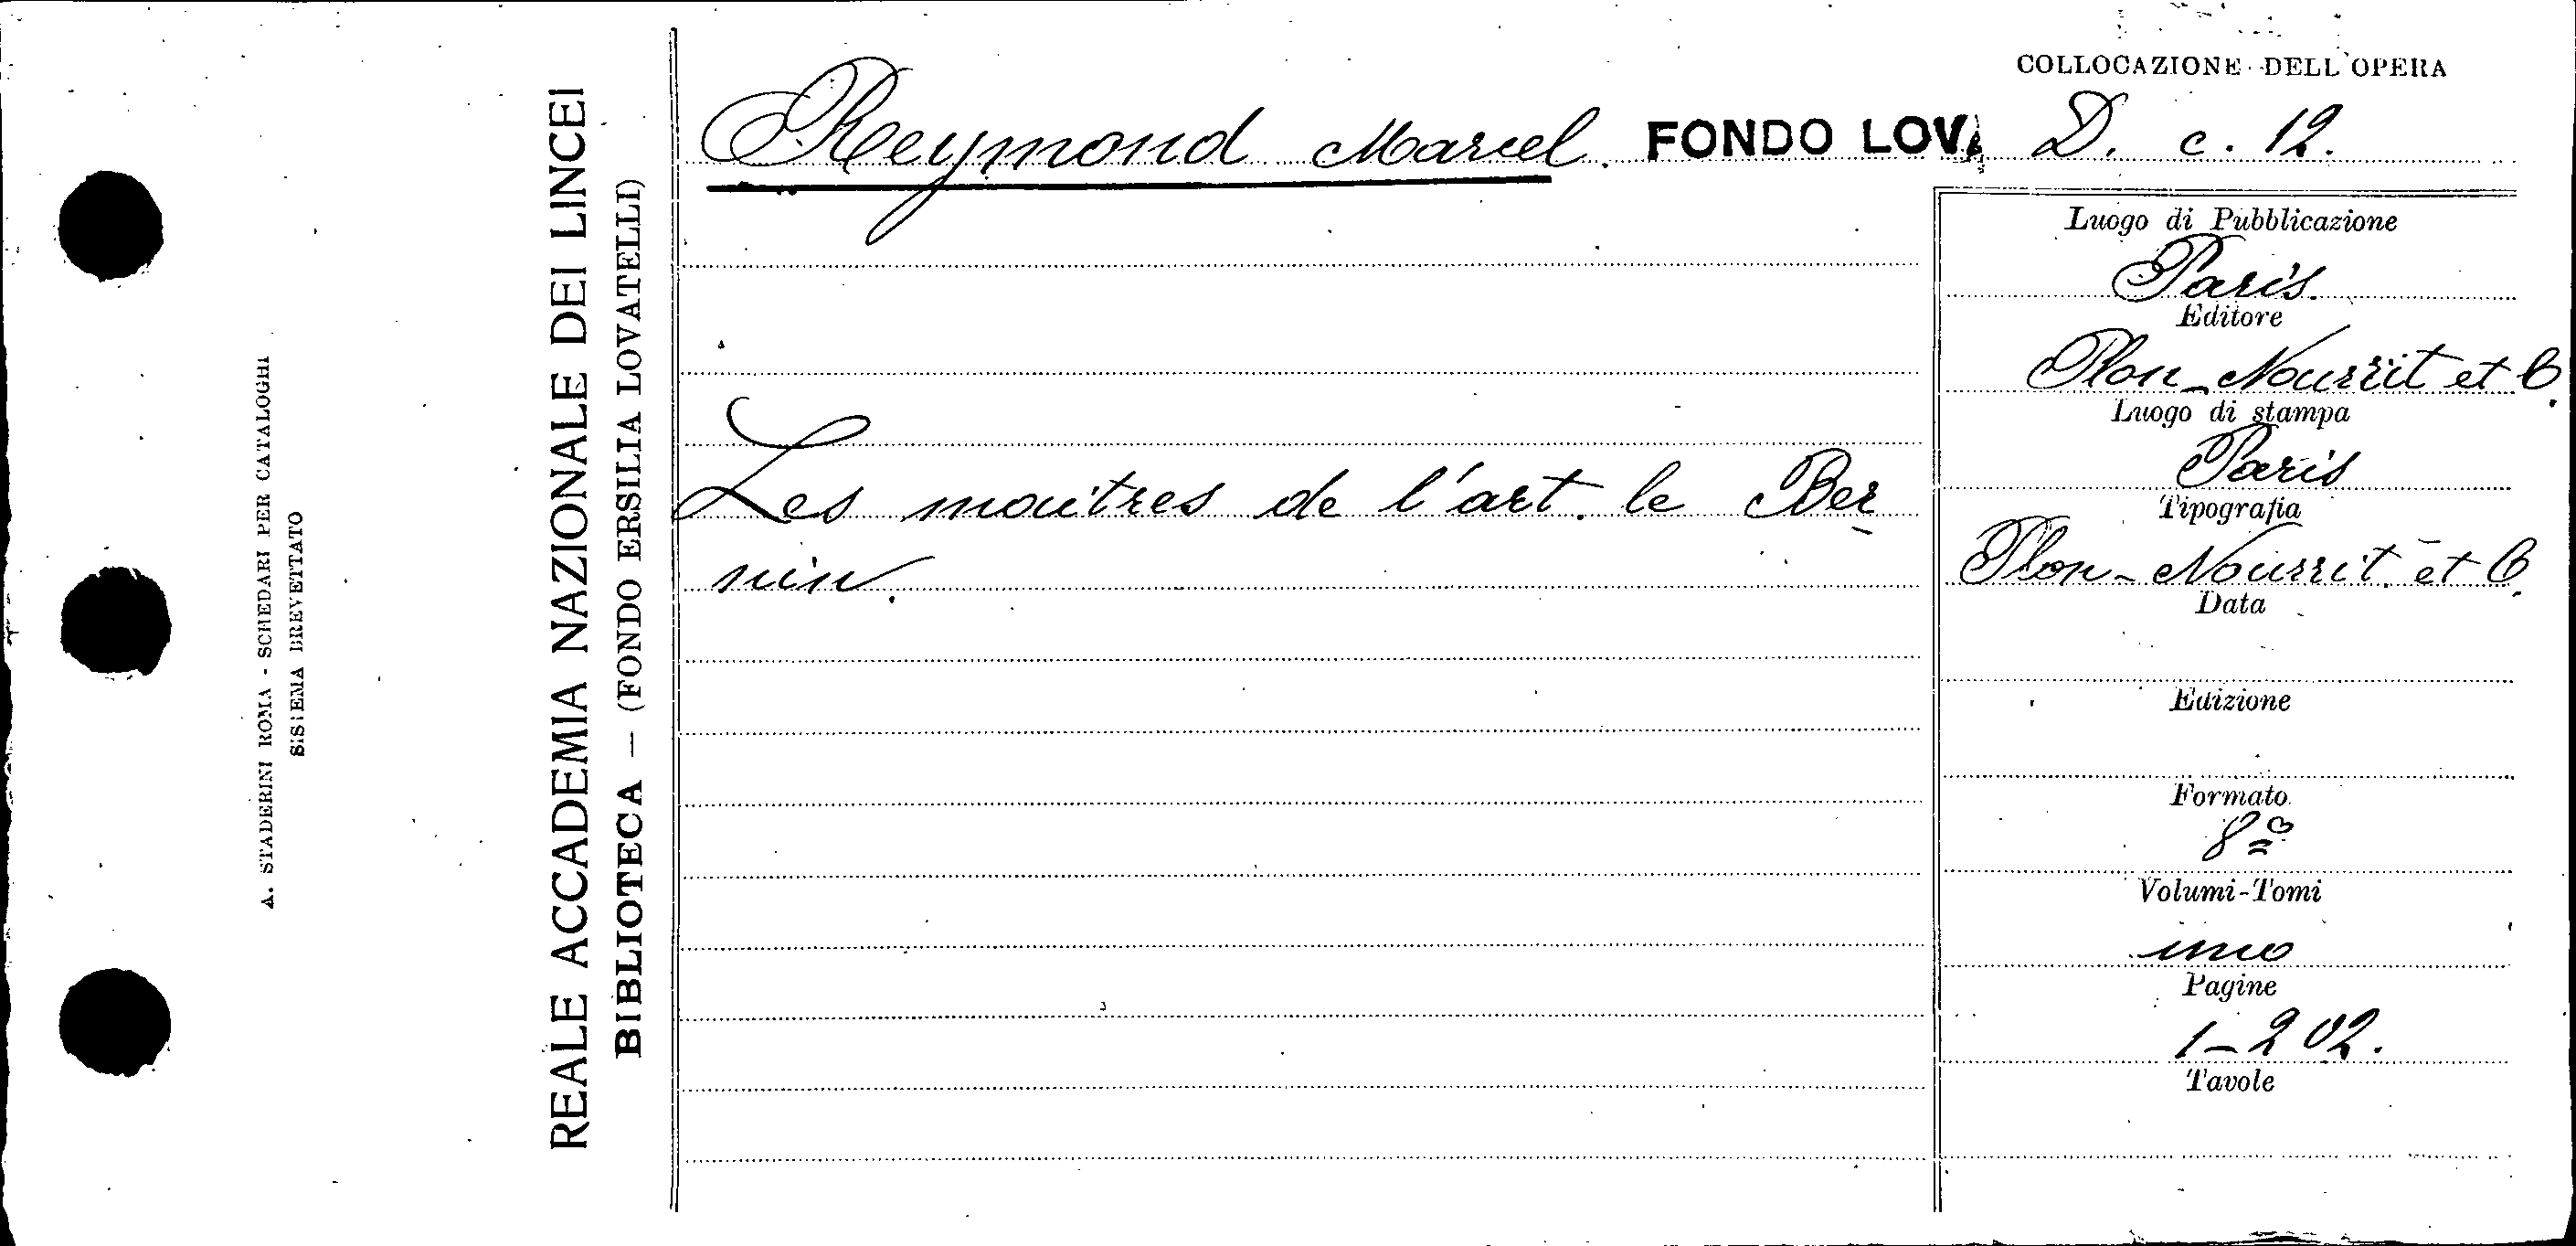 A. STADERINI ROMA - SCHEDARI PER CATALOGHI
SISTEMA BREVETTATO
REALE ACCADEMIA NAZIONALE DEI LINCEI
BIBLIOTECA — (FONDO ERSILIA LOVATELLI)
Reymond Marcel. FONDO LOVA
Les maitres de l'art. le Ber
nin.
COLLOCAZIONE DELL'OPERA
D. c. 12.
Luogo di Pubblicazione
Paris.
Editore
Plon-Nourrit et C.
Luogo di stampa
Paris
Tipografia
Plon-Nourrit et C.
Data
Edizione
Formato
8º
Volumi-Tomi
uno
Pagine
1-202.
Tavole